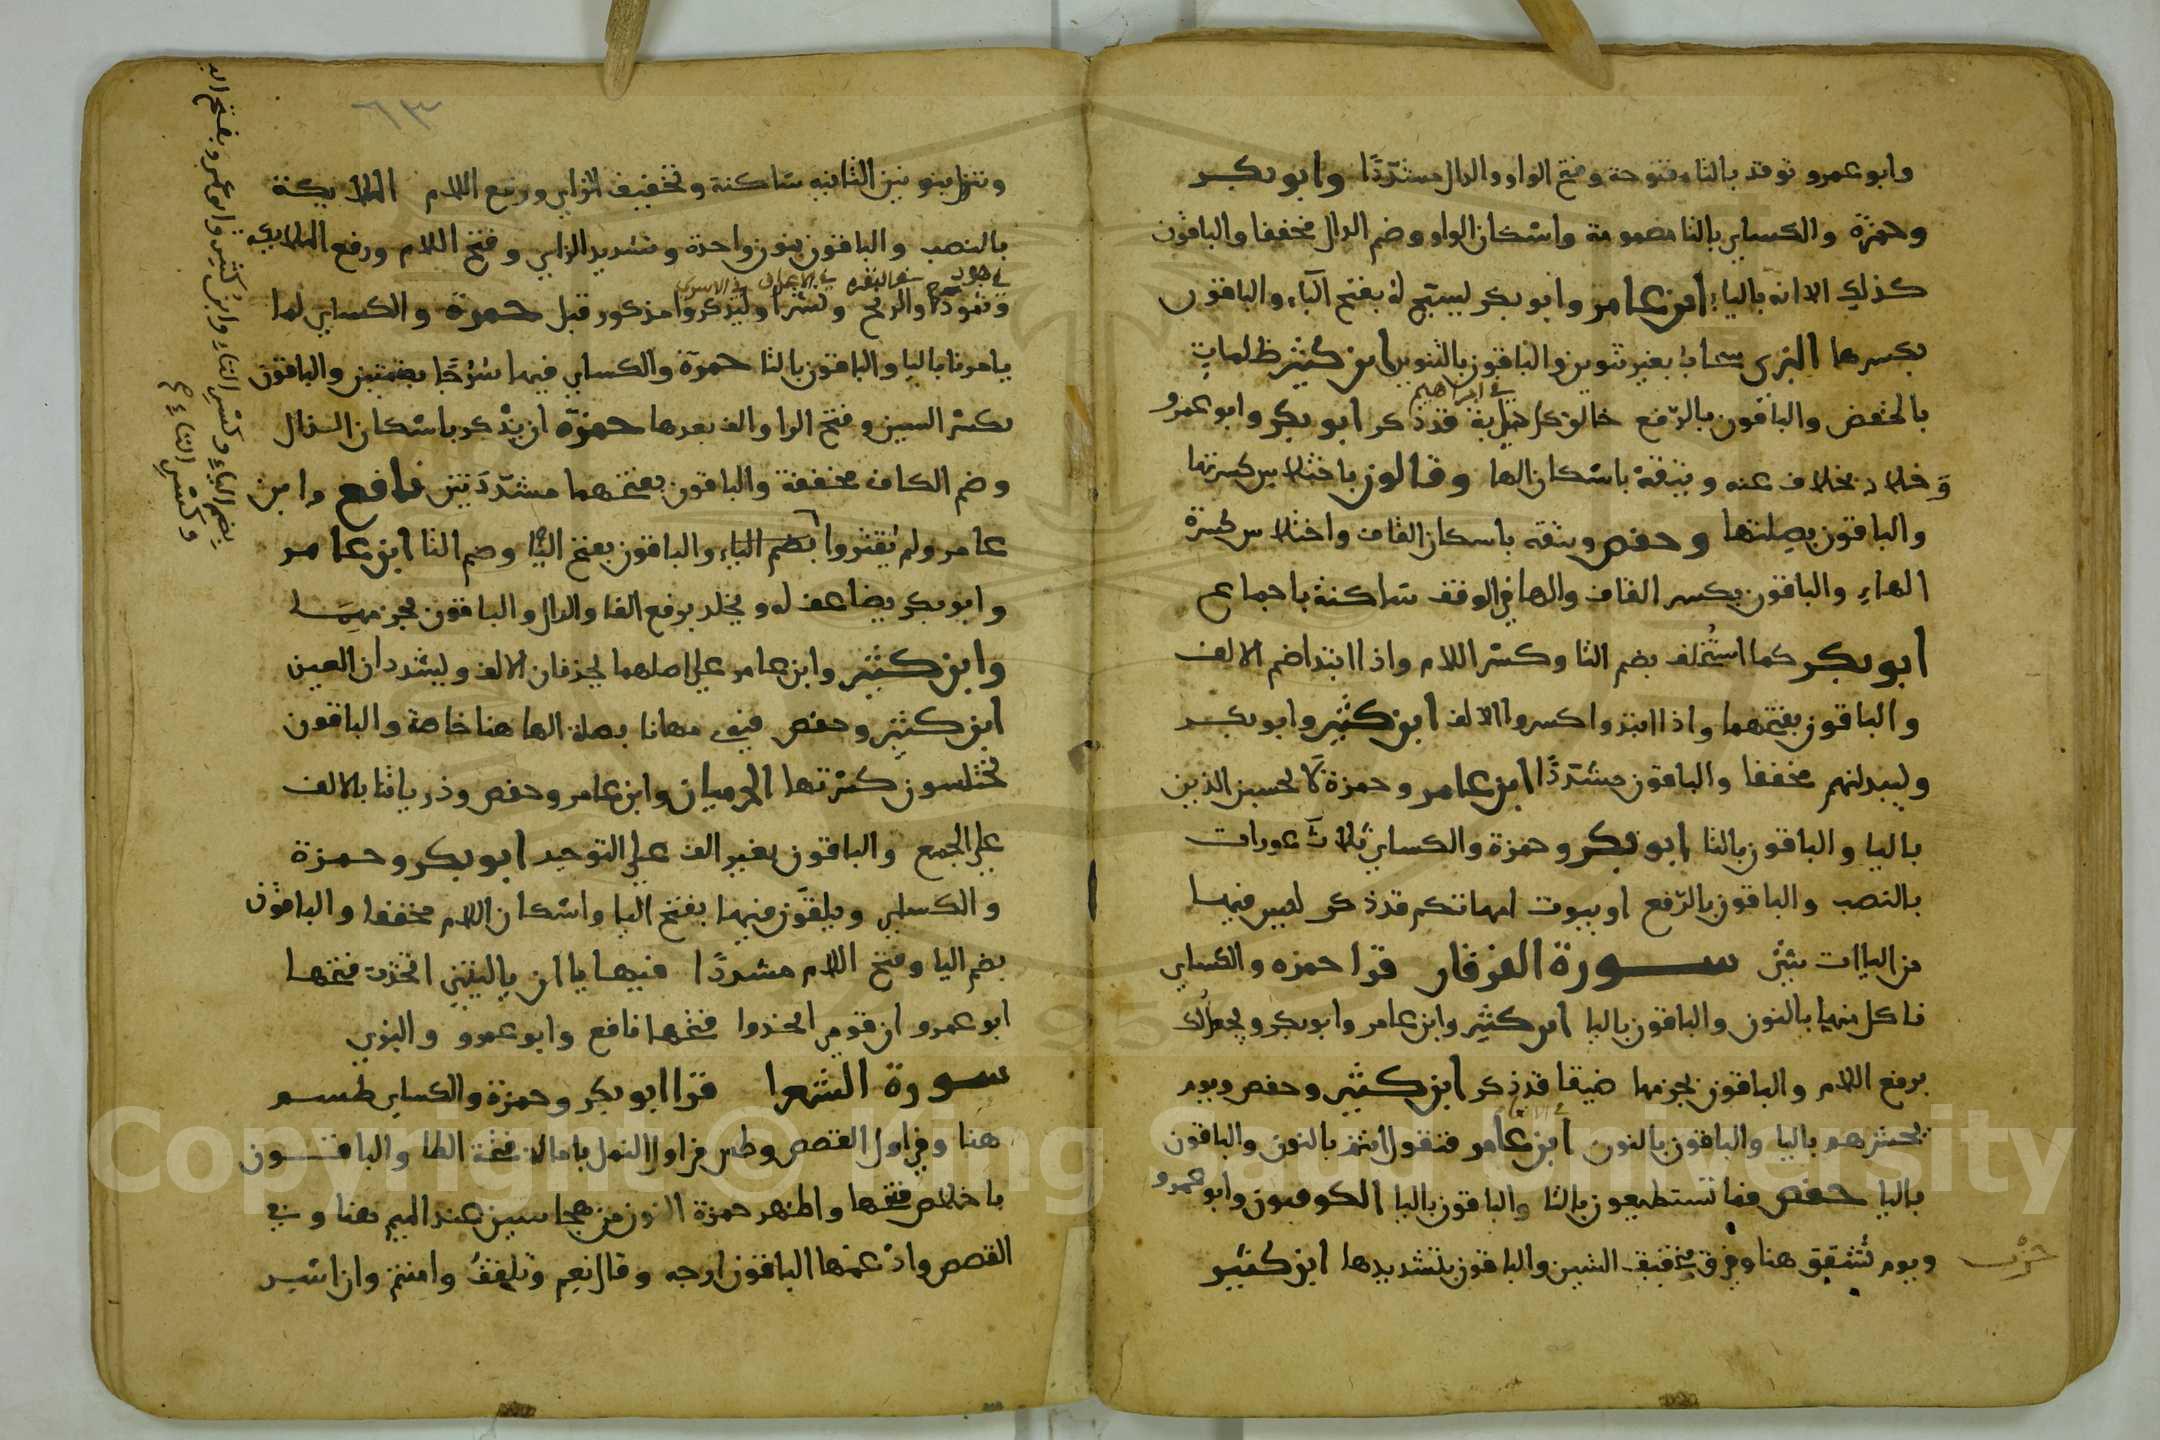 وابو عمرو توقد بالتاء مفتوحة وفتح الواو والدال مشدّدًا وابو بكر
وحمزة والكساي بالتا مضمومة واسكان الواو وضم الدال مخففا والباقون
كذلك الا انه بالياء ابن عامر وابو بكر يسبّح لهُ بفتح الباء والباقون
بكسرها البزى سحاب بغير تنوين والباقون بالتنوين ابن كثير ظلمات
بالخفض والباقون بالرّفع خالق كل دابة قد ذكر ابو بكر وابو عمرو
في ابراهيم
وخلاد بخلاف عنه ويتقهْ باسكان الها وقالون باختلاس كسرتها
والباقون بصلتها وحفص ويتقه باسكان القاف واختلاس كسرة
الهاءِ والباقون بكسر القاف والها في الوقف ساكنة باجماع
ابو بكر كما استُخلف بضم التا وكسر اللام واذا ابتدا ضم الالف
والباقون بفتحهما واذا ابتدوا كسروا الالف ابن كثير وابو بكر
وليبدلنهم مخففا والباقون مشدّدًا ابن عامر وحمزة لا يحسبن الذين
باليا والباقون بالتا ابو بكر وحمزة والكساي ثلاثَ عورات
بالنصب والباقون بالرّفع او بيوت امهاتكم قد ذكر ليس فيها
من الياات شئ سورة الفرقان قرا حمزه والكساي
ناكل منها بالنون والباقون باليا ابن كثير وابن عامر وابو بكر ويجعلُ لك
برفع اللام والباقون بجزمها ضيقا قد ذكر ابن كثير وحفص ويوم
في الانعام
يحشرهم باليا والباقون بالنون ابن عامر فنقول اانتم بالنون والباقون
باليا حفص فما تستطيعون بالتا والباقون باليا الكوفيون وابو عمرو
ويوم تشقق هنا وفي ق بتخفيف الشين والباقون بتشديدها ابن كثير
حزب
٦٣
وننزل بنونين الثانيه ساكنة وتخفيف الزاي ورفع اللام الملايكة
بالنصب والباقون بنون واحدة وتشديد الزاي وفتح اللام ورفع الملايكه
في هود في البقره في الاعراف في الاسرى
وثمودا والريح ونشرا وليذكروا مذكور قبل حمزة والكساي لما
يامرنا باليا والباقون بالتا حمزة والكساي فيها سُرُجًا بضمتين والباقون
بكسر السين وفتح الرا والف بعدها حمزة ان يذْكر باسكان الذال
وضم الكاف مخففة والباقون بفتحهما مشدّدَتين نافع وابن
عامر ولم يُقتروا بضم الياء والباقون بفتح اليا وضم التا ابن عامر
وابو بكر يضاعف له ويخلد برفع الفا والدال والباقون بجزمهما
وابن كثير وابن عامر علي اصلهما يحذفان الالف ويشددان العين
ابن كثير وحفص فيهى مهانا بصلة الها هنا خاصة والباقون
يختلسون كسرتها الحرميان وابن عامر وحفص وذرياتنا بالالف
علي الجمع والباقون بغير الف علي التوحيد ابو بكر وحمزة
والكساي ويلقَون فيها بفتح اليا واسكان اللام مخففا والباقون
بضم اليا وفتح اللام مشددًا فيها يا ان ياليتني اتخذت فتحها
ابو عمرو ان قومي اتخذوا فتحها نافع وابو عمرو والبزي
سورة الشعرا قرا ابو بكر وحمزة والكساي طسم
هنا وفي اول القصص وطس في اول النمل بامالة فتحة الطا والباقون
باخلاص فتحها واظهر حمزة النون من هجا سين عند الميم هنا وفي
القصص وادغمها الباقون ارجه وقال نعم وتلقفُ وامنتم وان اسر
بضم الياءِ وكسْرِ التاءِ وابنُ كثيرٍ وابو عَمرو بفتح الي
وكسْرِ التاءِ